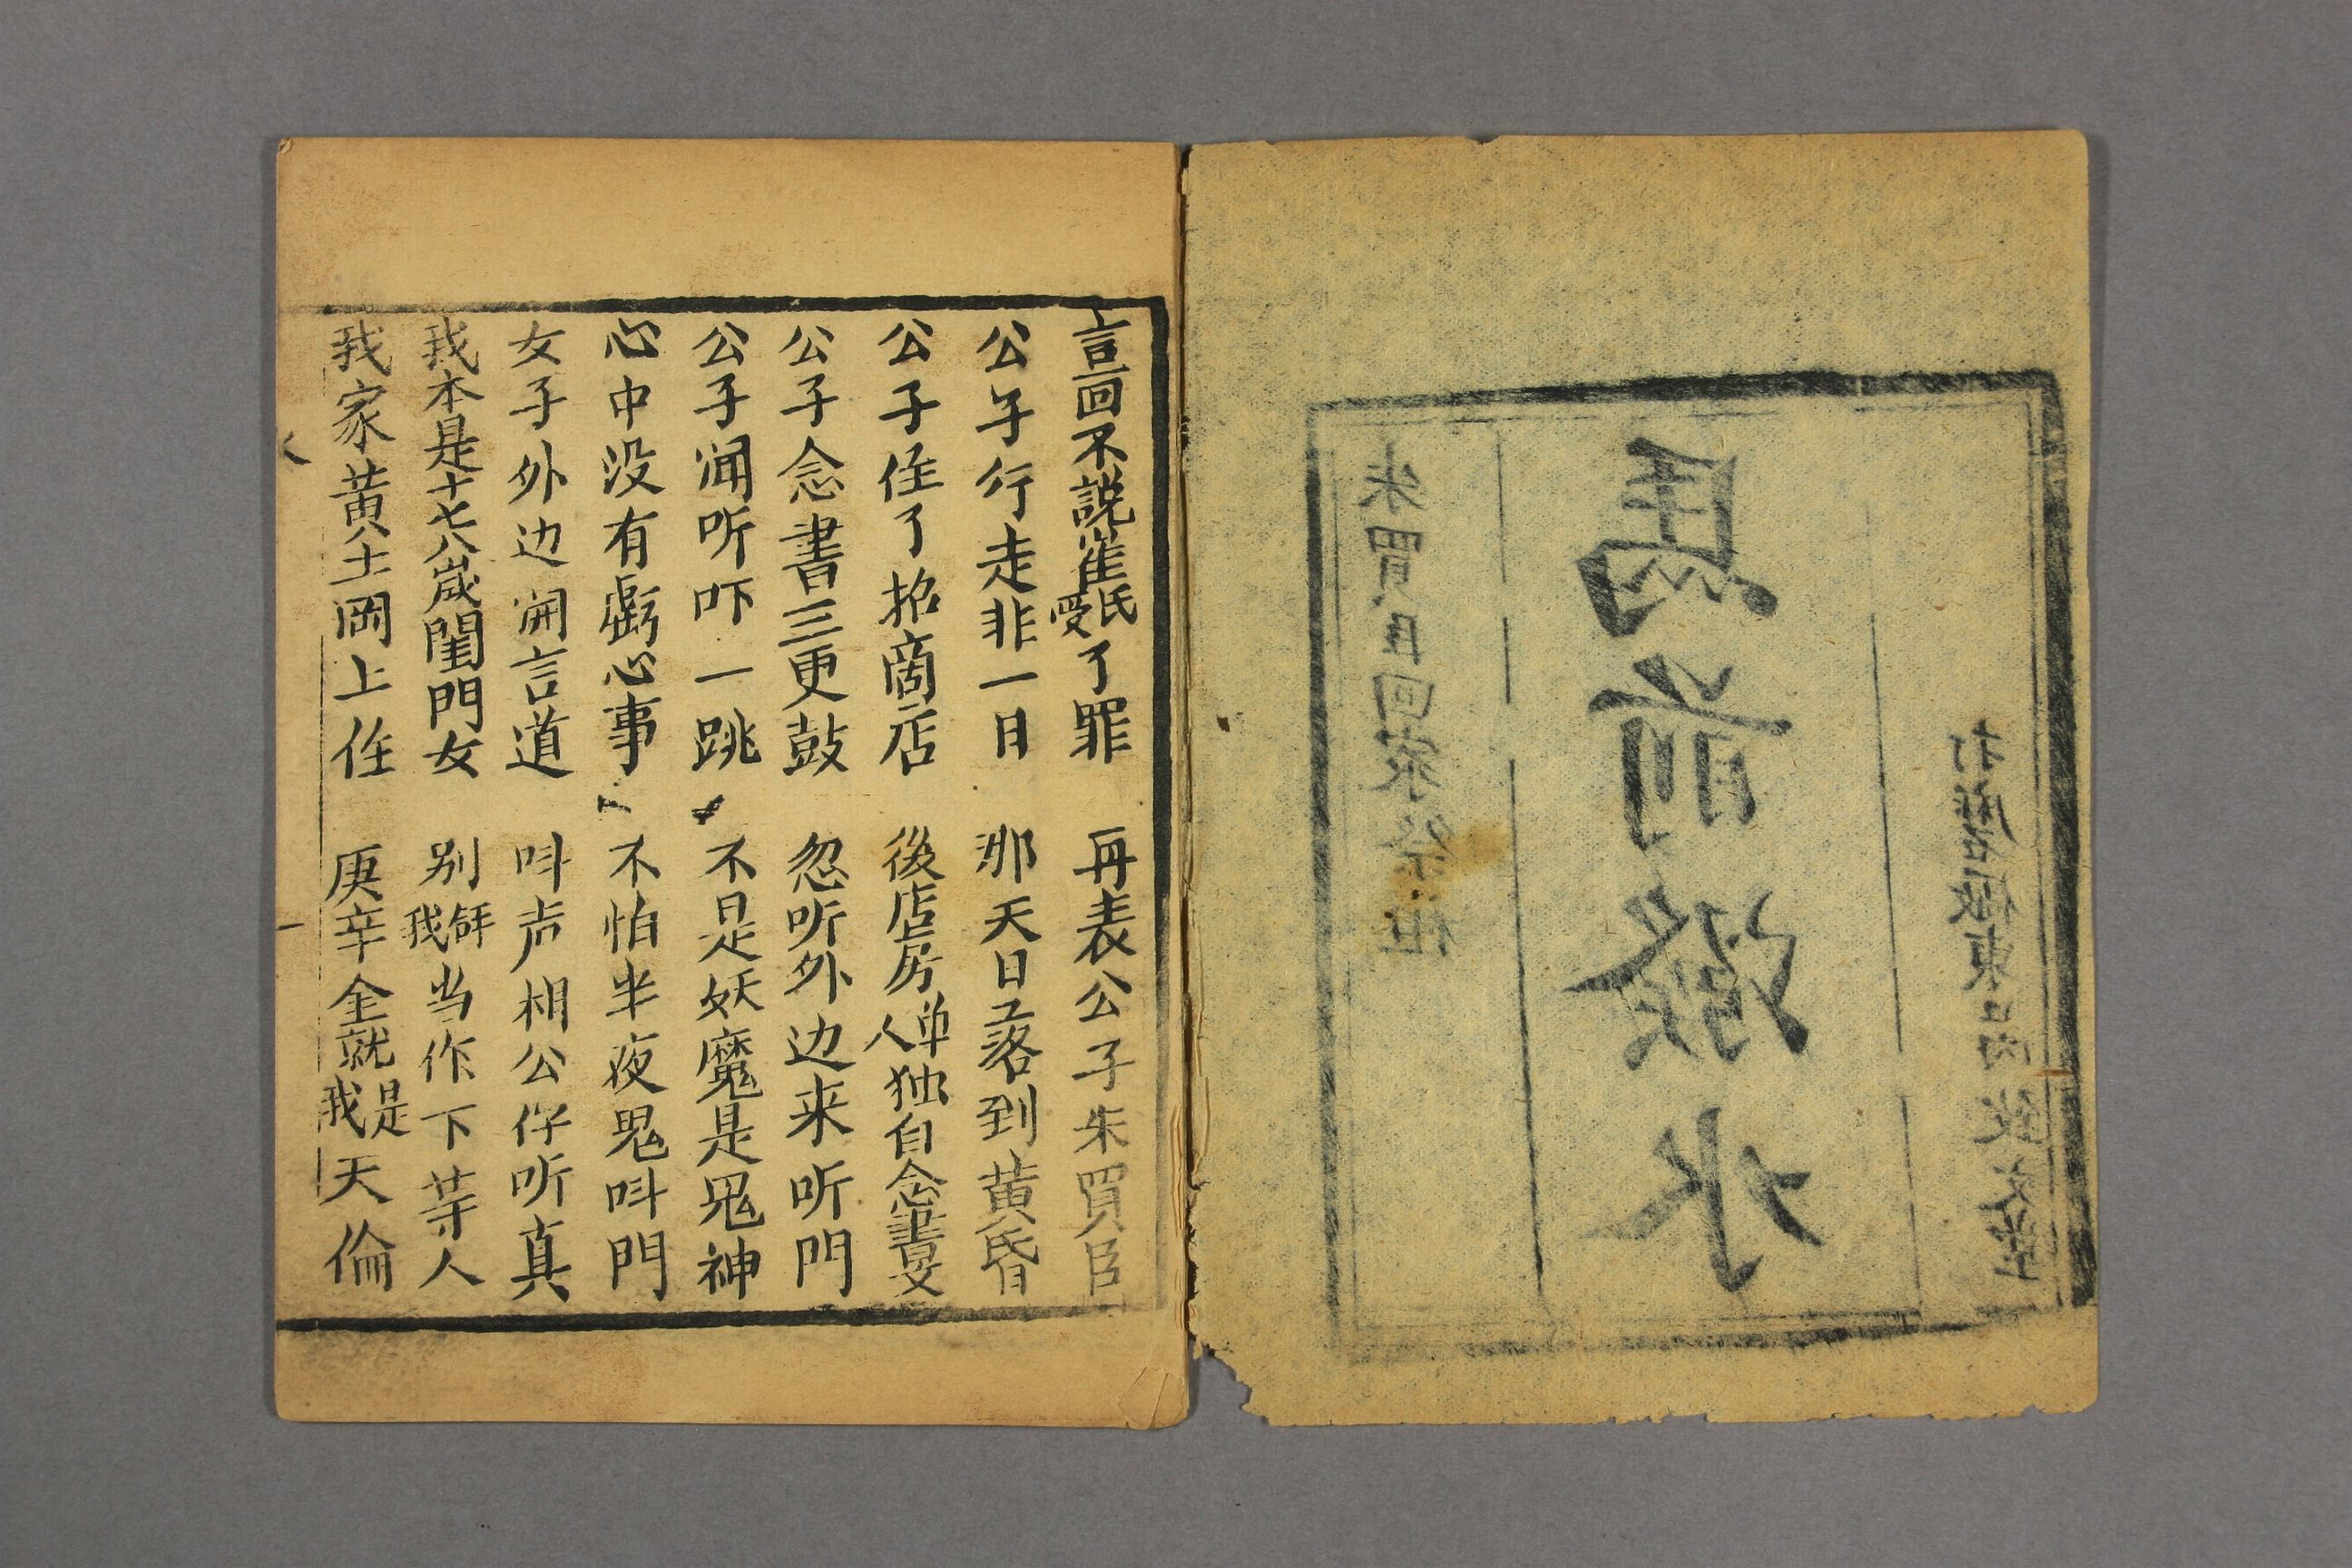 打磨厰東口內致文堂
馬前潑水
朱買臣回家祭祖
上言回不説崔氏受了罪 再表公子朱買臣
公子行走非一日 那天日落到黄昏
公子住了招商店 後店房单人独自念書文
公子念書三更鼓 忽听外边来听門
公子闻听吓一跳 不是妖魔是鬼神
心中没有虧心事 不怕半夜鬼呌門
女子外边開言道 呌声相公仔听真
我本是十七八歲閨門女 别我当作下等人
我家黄土岡上住 庚辛全就是我天倫
一